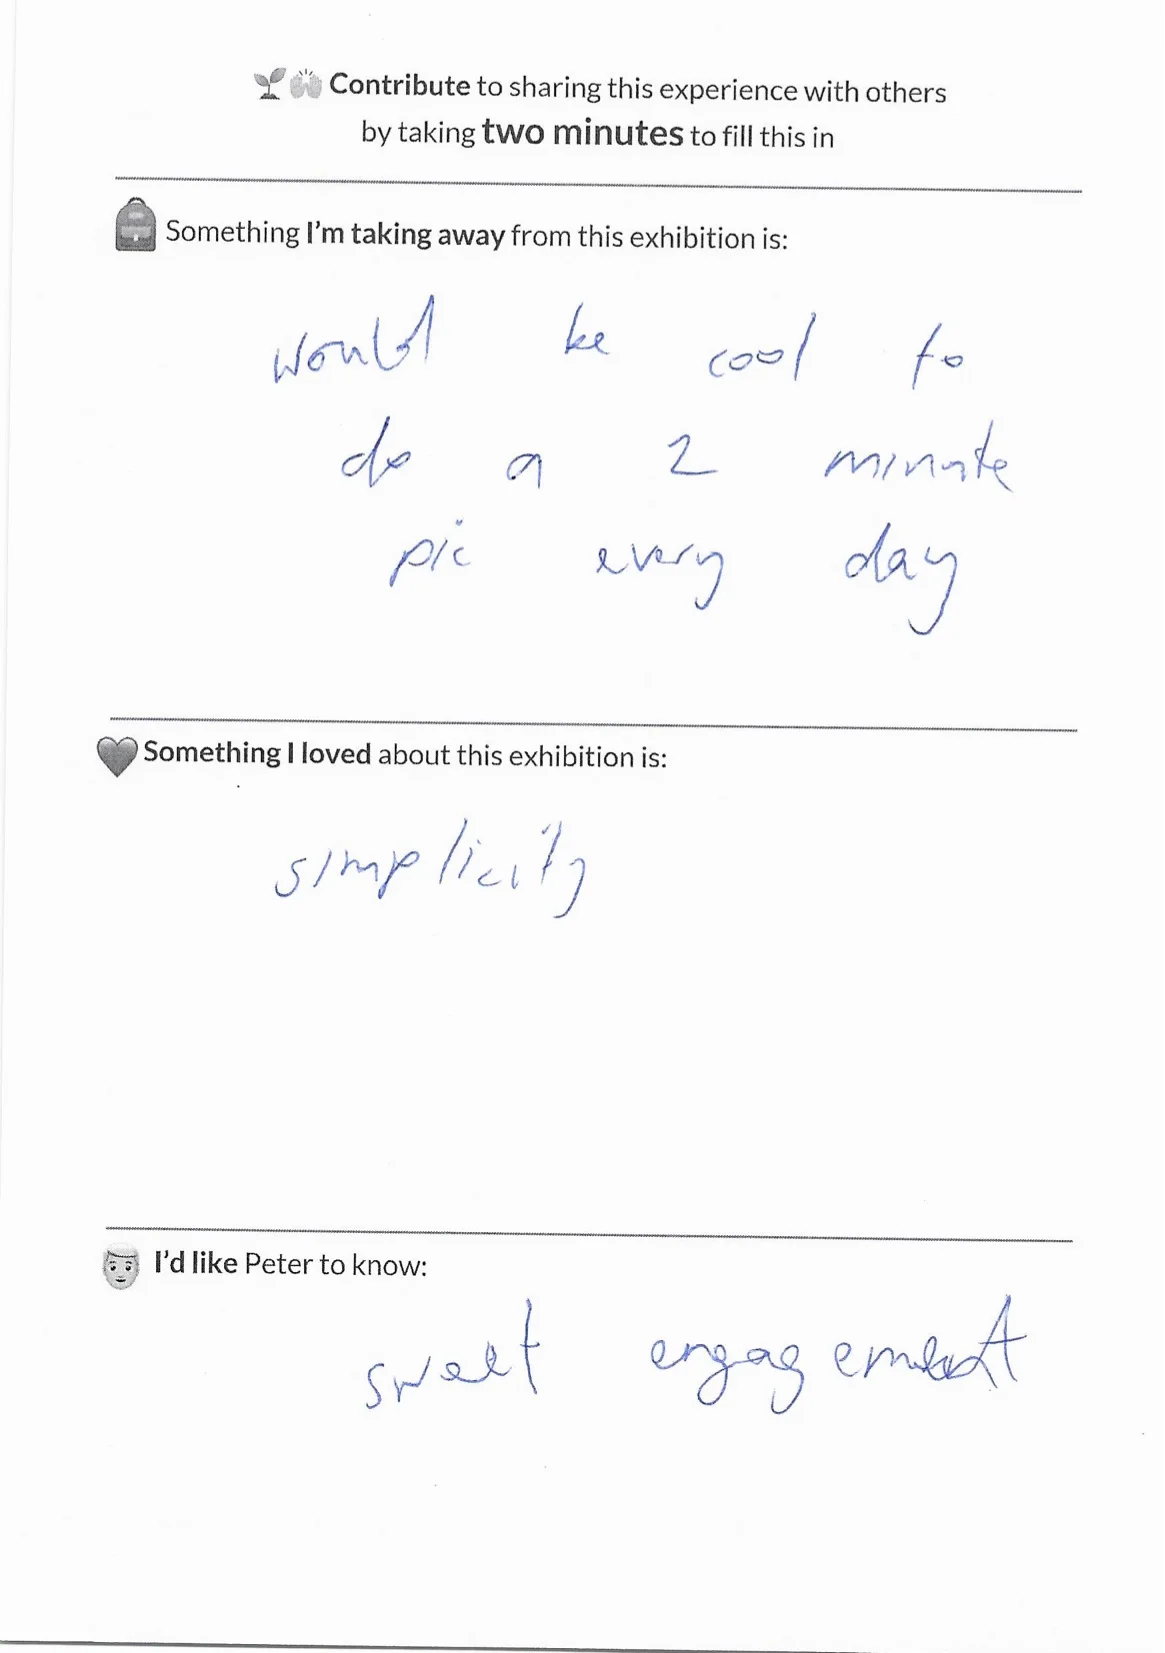 Contribute to sharing this experience with others
by taking two minutes to fill this in
Something I'm taking away from this exhibition is:
would be cool to
do a 2 minute
pic every day
Something I loved about this exhibition is:
simplicity
I'd like Peter to know:
sweet engagement